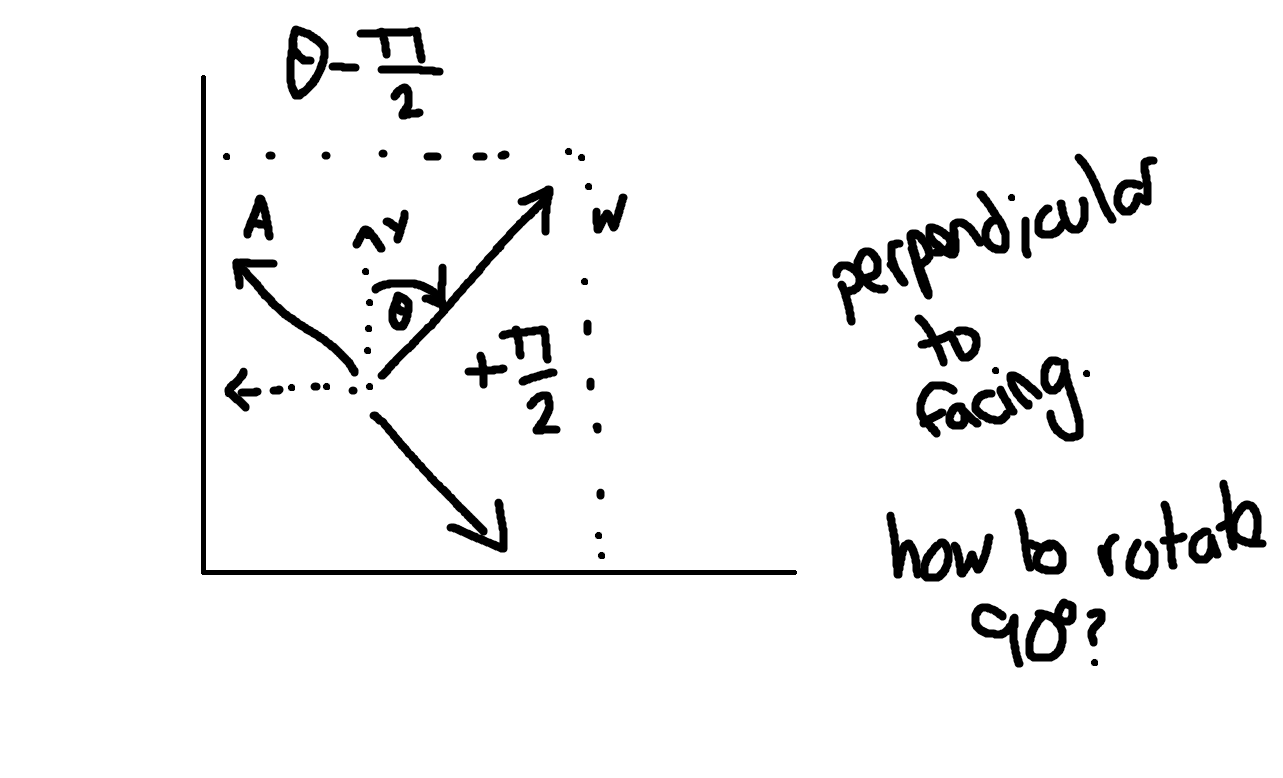 θ - π/2
A
^ y
W
θ
+ π/2
perpendicular
to
facing
how to rotate
90°?